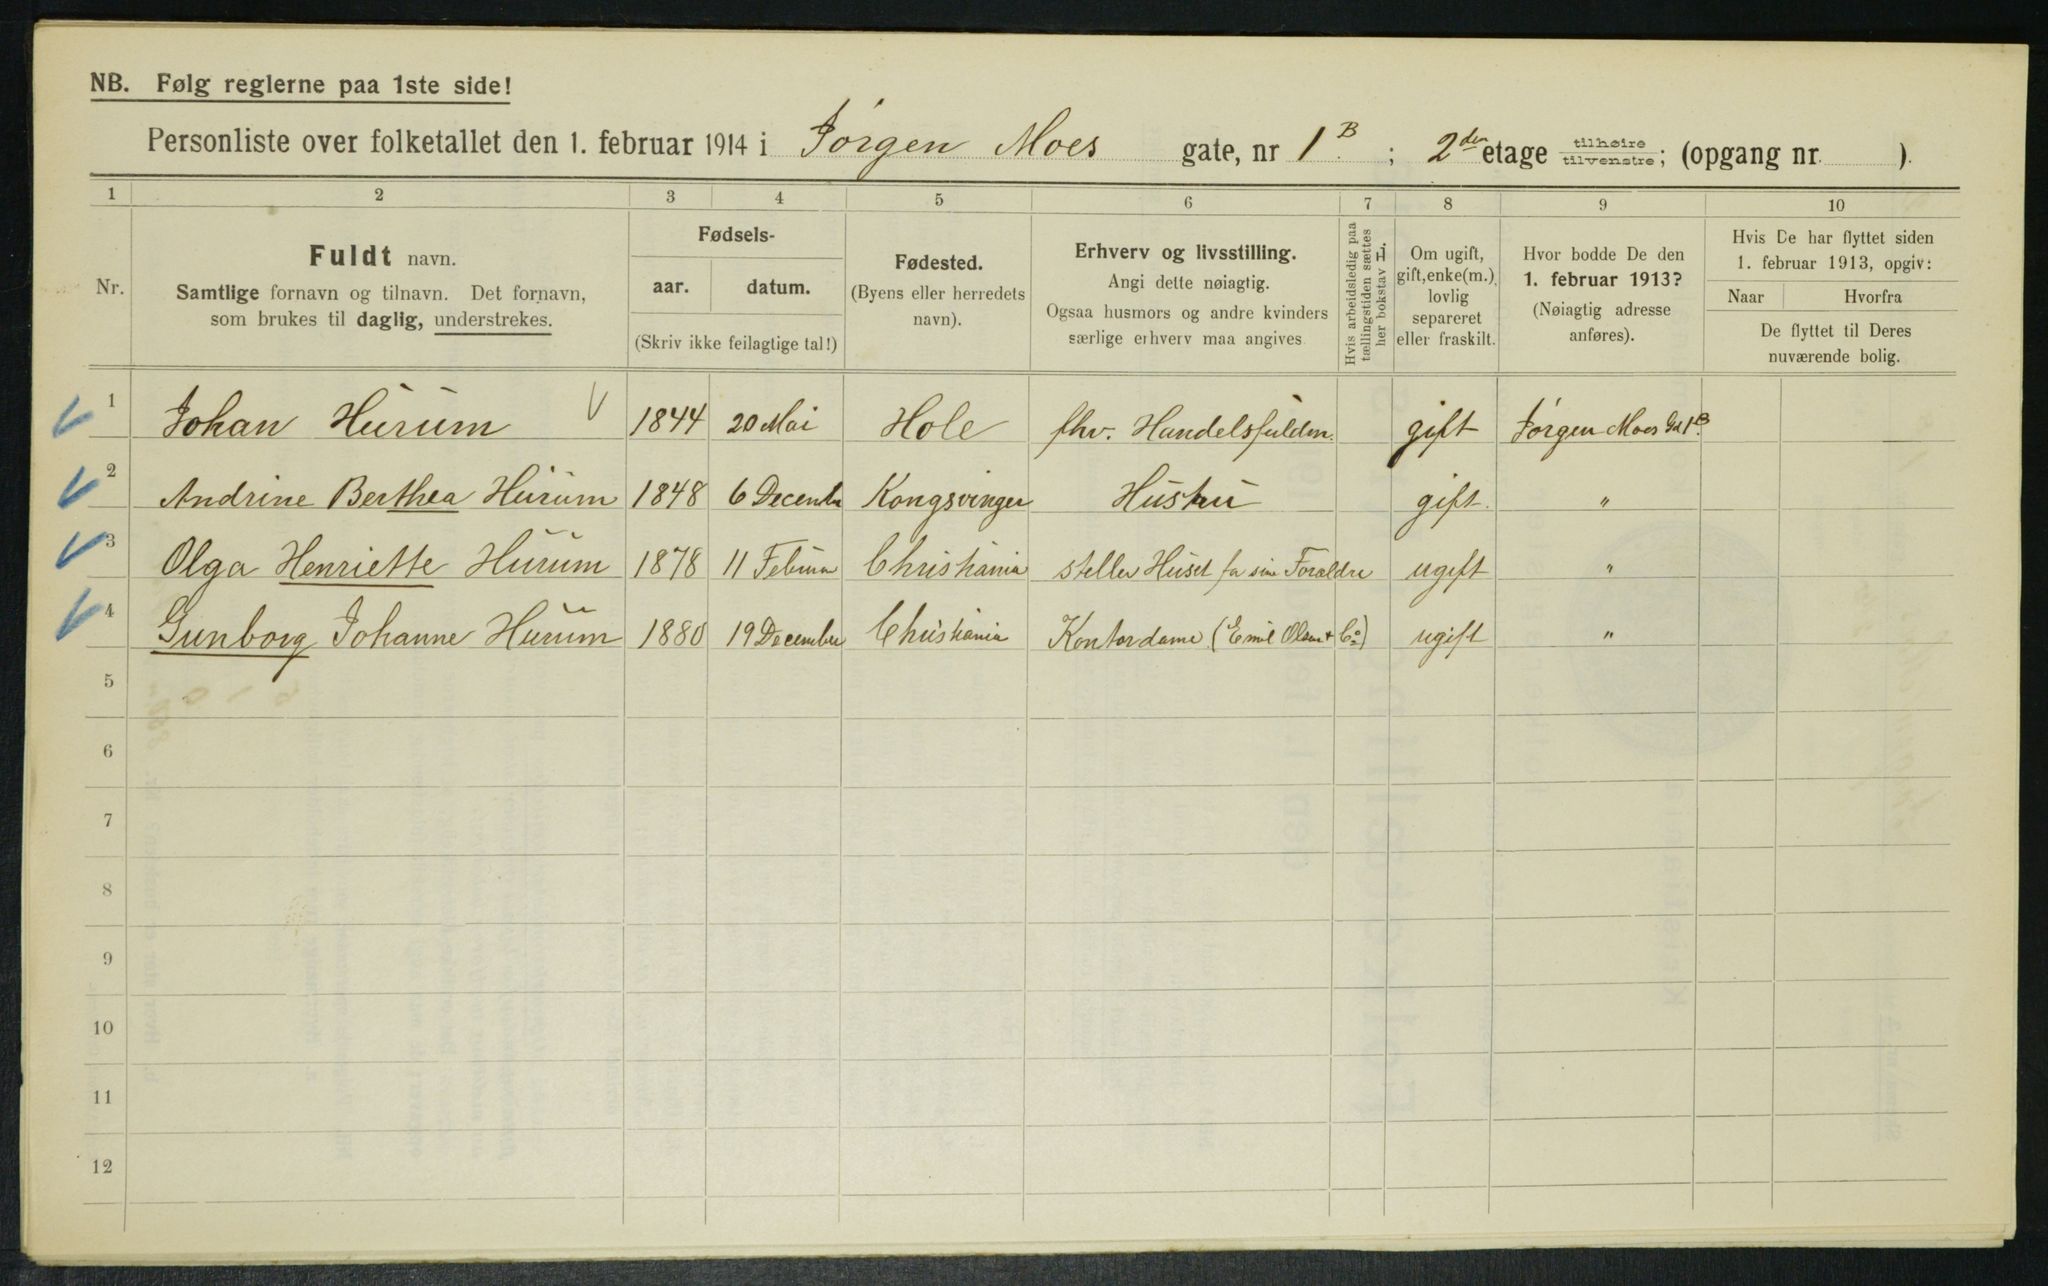 NB. Følg reglerne paa 1ste side!
Personliste over folketallet den 1. februar 1914 i Jørgen Moes gate, nr 1 B. ; 2den etage tilhøire tilvenstre; (opgang nr ).
1 2 3 4 5 6 7 8 9 10
Nr.
Fuldt navn.
Samtlige fornavn og tilnavn. Det fornavn,
som brukes til daglig, understrekes.
Fødsels-
aar. datum.
(Skriv ikke feilagtige tal!)
Fødested.
(Byens eller herredets
navn).
Erhverv og livsstilling.
Angi dette nøiagtig.
Ogsaa husmors og andre kvinders
særlige erhverv maa angives
Hvis arbeidsledig paa
tællingstiden sættes
her bokstav L.
Om ugift,
gift, enke(m.),
lovlig
separeret
eller fraskilt.
Hvor bodde De den
1. februar 1913?
(Nøiagtig adresse
anføres).
Hvis De har flyttet siden
1. februar 1913, opgiv:
Naar Hvorfra
De flyttet til Deres
nuværende bolig.
1 Johan Hurum 1844 20 Mai Hole fhv. Handelsfuldm. gift Jørgen Moes Gd 1 B
2 Andrine Berthea Hurum 1848 6 Decembr Kongsvinger Hustru gift. "
3 Olga Henriette Hurum 1878 11 Februar Christiania steller Huset for sine Forældre ugift "
4 Gunborg Johanne Hurum 1880 19 December Christiania Kontordame (Emil Olsen & Co) ugift "
5
6
7
8
9
10
11
12